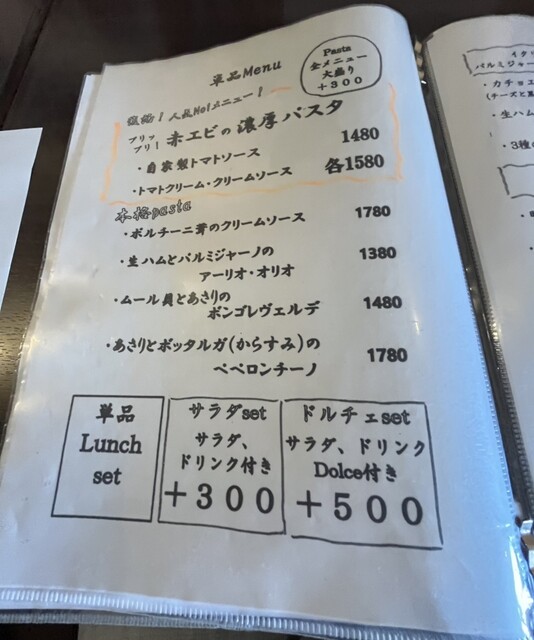 単品Menu
Pasta
全メニュー
大盛り
+300
人気No1メニュー！
プリッ
プリ！
赤エビの濃厚パスタ
・自家製トマトソース 1480
・トマトクリーム・クリームソース 各1580
本格pasta
・ポルチーニ茸のクリームソース 1780
・生ハムとパルミジャーノの 1380
アーリオ・オリオ
・ムール貝とあさりの 1480
ボンゴレヴェルデ
・あさりとボッタルガ(からすみ)の 1780
ペペロンチーノ
単品
Lunch
set
サラダset
サラダ、
ドリンク付き
+300
ドルチェset
サラダ、ドリンク
Dolce付き
+500
イタ
パルミジャー
・カチョエ
(チーズと黒
・生ハム
・3種の